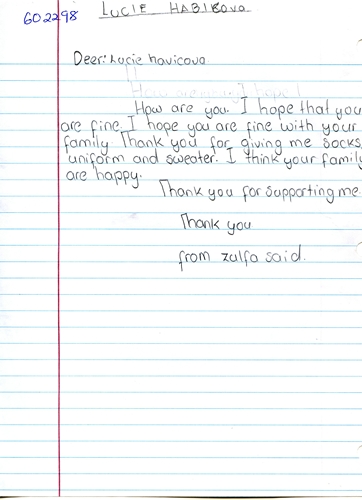 602298
LUCIE HABIBOVA
Deer: Lucie havicova
How are you. I hope that you
are fine. I hope you are fine with your
family. Thank you for giving me socks,
uniform and sweater. I think your family
are happy.
Thank you for supporting me.
Thank you
from zulfa said.